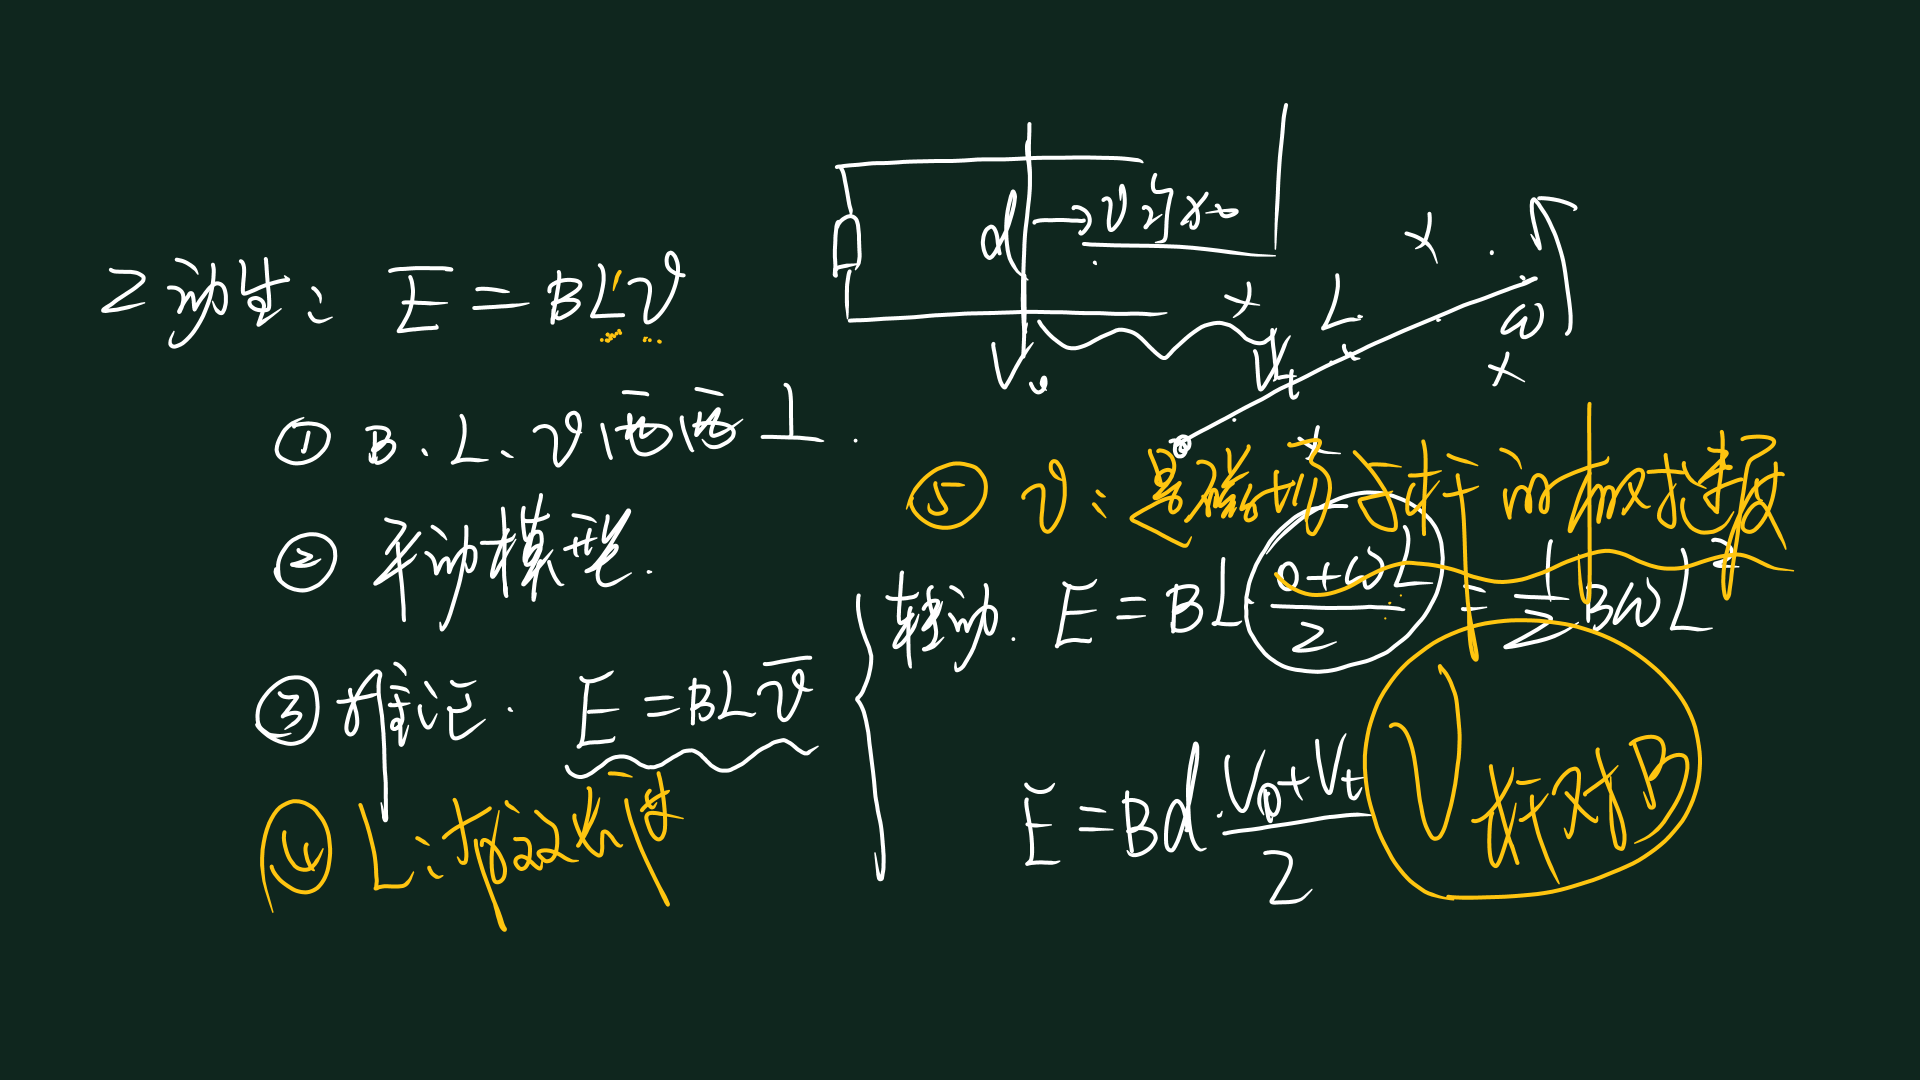 2 动生: E = BLv
① B、L、v 两两⊥.
② 平动模型.
③ 推论. E = BLv̄
④ L: 有效长度
d → v 均加
V₀
Vt
L
ω
⑤ v: 是磁场与杆的相对速度
转动. E = BL (0+ωL)/2 = 1/2 BωL²
Ē = Bd · (V₀+Vt)/2
v杆对B